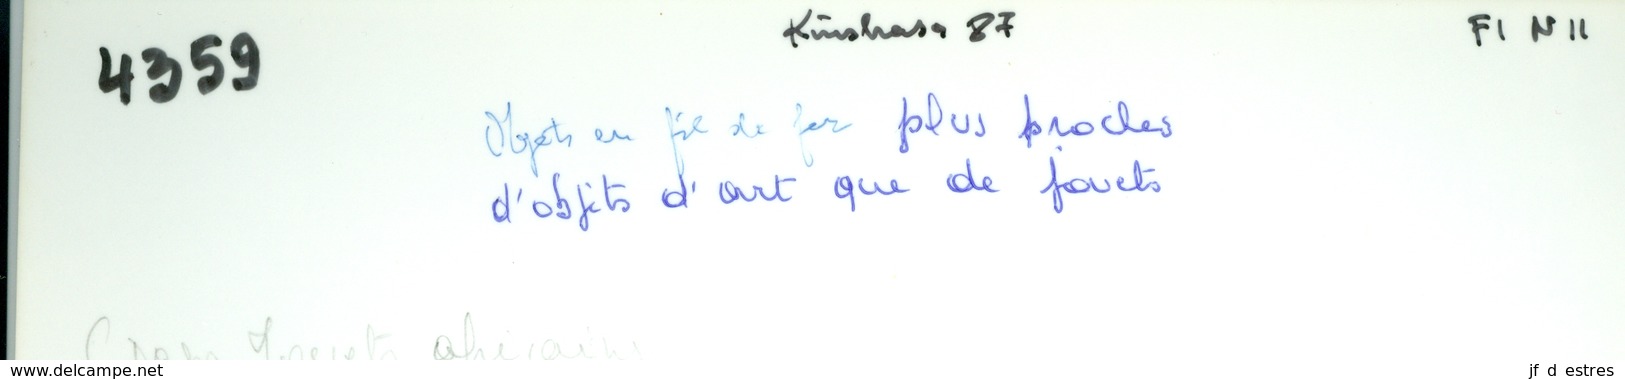 Kinshasa 87
F1 N 11
4359
Objets en fil de fer plus proches
d'objets d'art que de jouets
jouets africains
www.delcampe.net
jf d estres